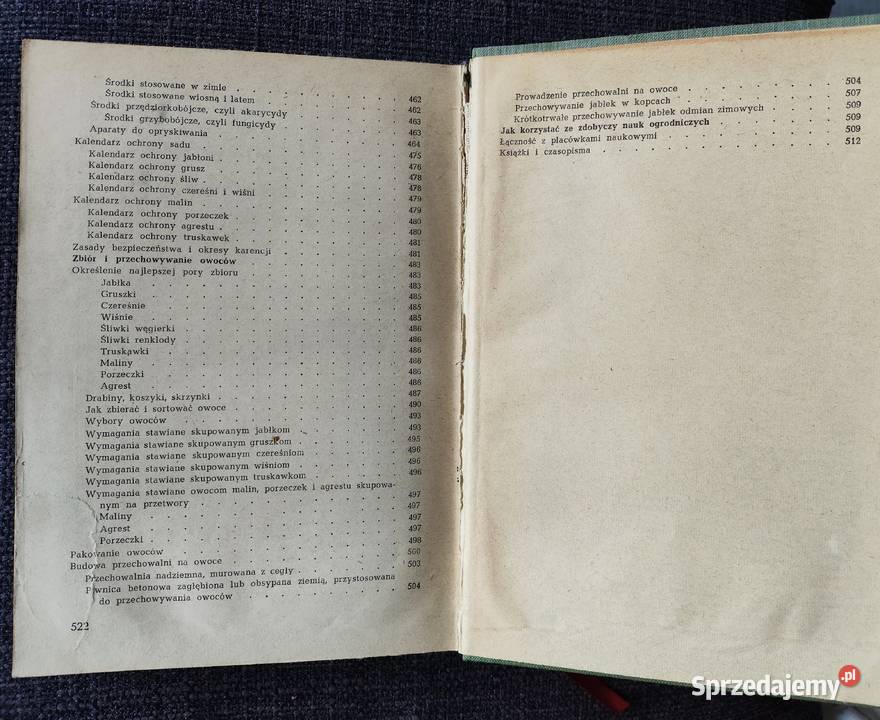 Środki stosowane w zimie . . . 462
Środki stosowane wiosną i latem . . . 462
Środki przędziorkobójcze, czyli akarycydy . . . 463
Środki grzybobójcze, czyli fungicydy . . . 463
Aparaty do opryskiwania . . . 464
Kalendarz ochrony sadu . . . 475
Kalendarz ochrony jabłoni . . . 476
Kalendarz ochrony grusz . . . 478
Kalendarz ochrony śliw . . . 478
Kalendarz ochrony czereśni i wiśni . . . 479
Kalendarz ochrony malin . . . 479
Kalendarz ochrony porzeczek . . . 480
Kalendarz ochrony agrestu . . . 480
Kalendarz ochrony truskawek . . . 481
Zasady bezpieczeństwa i okresy karencji . . . 481
Zbiór i przechowywanie owoców . . . 483
Określenie najlepszej pory zbioru . . . 483
Jabłka . . . 483
Gruszki . . . 485
Czereśnie . . . 485
Wiśnie . . . 485
Śliwki węgierki . . . 486
Śliwki renklody . . . 486
Truskawki . . . 486
Maliny . . . 486
Porzeczki . . . 486
Agrest . . . 486
Drabiny, koszyki, skrzynki . . . 487
Jak zbierać i sortować owoce . . . 490
Wybory owoców . . . 493
Wymagania stawiane skupowanym jabłkom . . . 493
Wymagania stawiane skupowanym gruszkom . . . 495
Wymagania stawiane skupowanym czereśniom . . . 496
Wymagania stawiane skupowanym wiśniom . . . 496
Wymagania stawiane skupowanym truskawkom . . . 496
Wymagania stawiane owocom malin, porzeczek i agrestu skupowa-
nym na przetwory . . . 497
Maliny . . . 497
Agrest . . . 497
Porzeczki . . . 497
Pakowanie owoców . . . 498
Budowa przechowalni na owoce . . . 500
Przechowalnia nadziemna, murowana z cegły . . . 503
Piwnica betonowa zagłębiona lub obsypana ziemią, przystosowana
do przechowywania owoców . . . 504
522
Prowadzenie przechowalni na owoce . . . 504
Przechowywanie jabłek w kopcach . . . 507
Krótkotrwałe przechowywanie jabłek odmian zimowych . . . 509
Jak korzystać ze zdobyczy nauk ogrodniczych . . . 509
Łączność z placówkami naukowymi . . . 509
Książki i czasopisma . . . 512
Sprzedajemy.pl